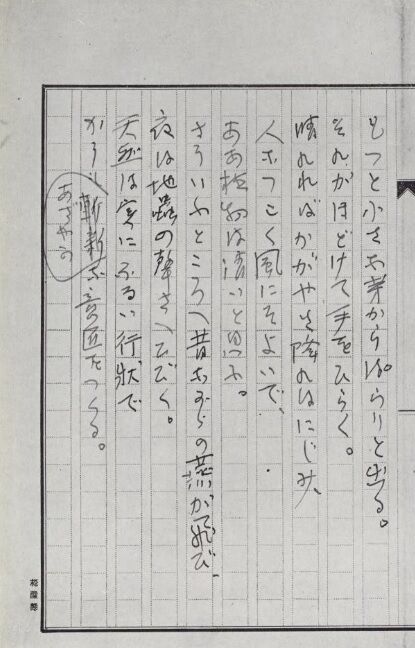 もつと小さな芽からぱらりと出る。
それがほどけて手をひらく。
晴れればかがやき降ればにじみ、
人なつこく風にそよいで、
ああ植物は清いと思ふ。
さういふところへ昔ながらの燕が飛び、
夜は地蟲の聲さへひびく。
天然は実にふるい行狀で
かうも斬新な意匠をつくる。
あざやか